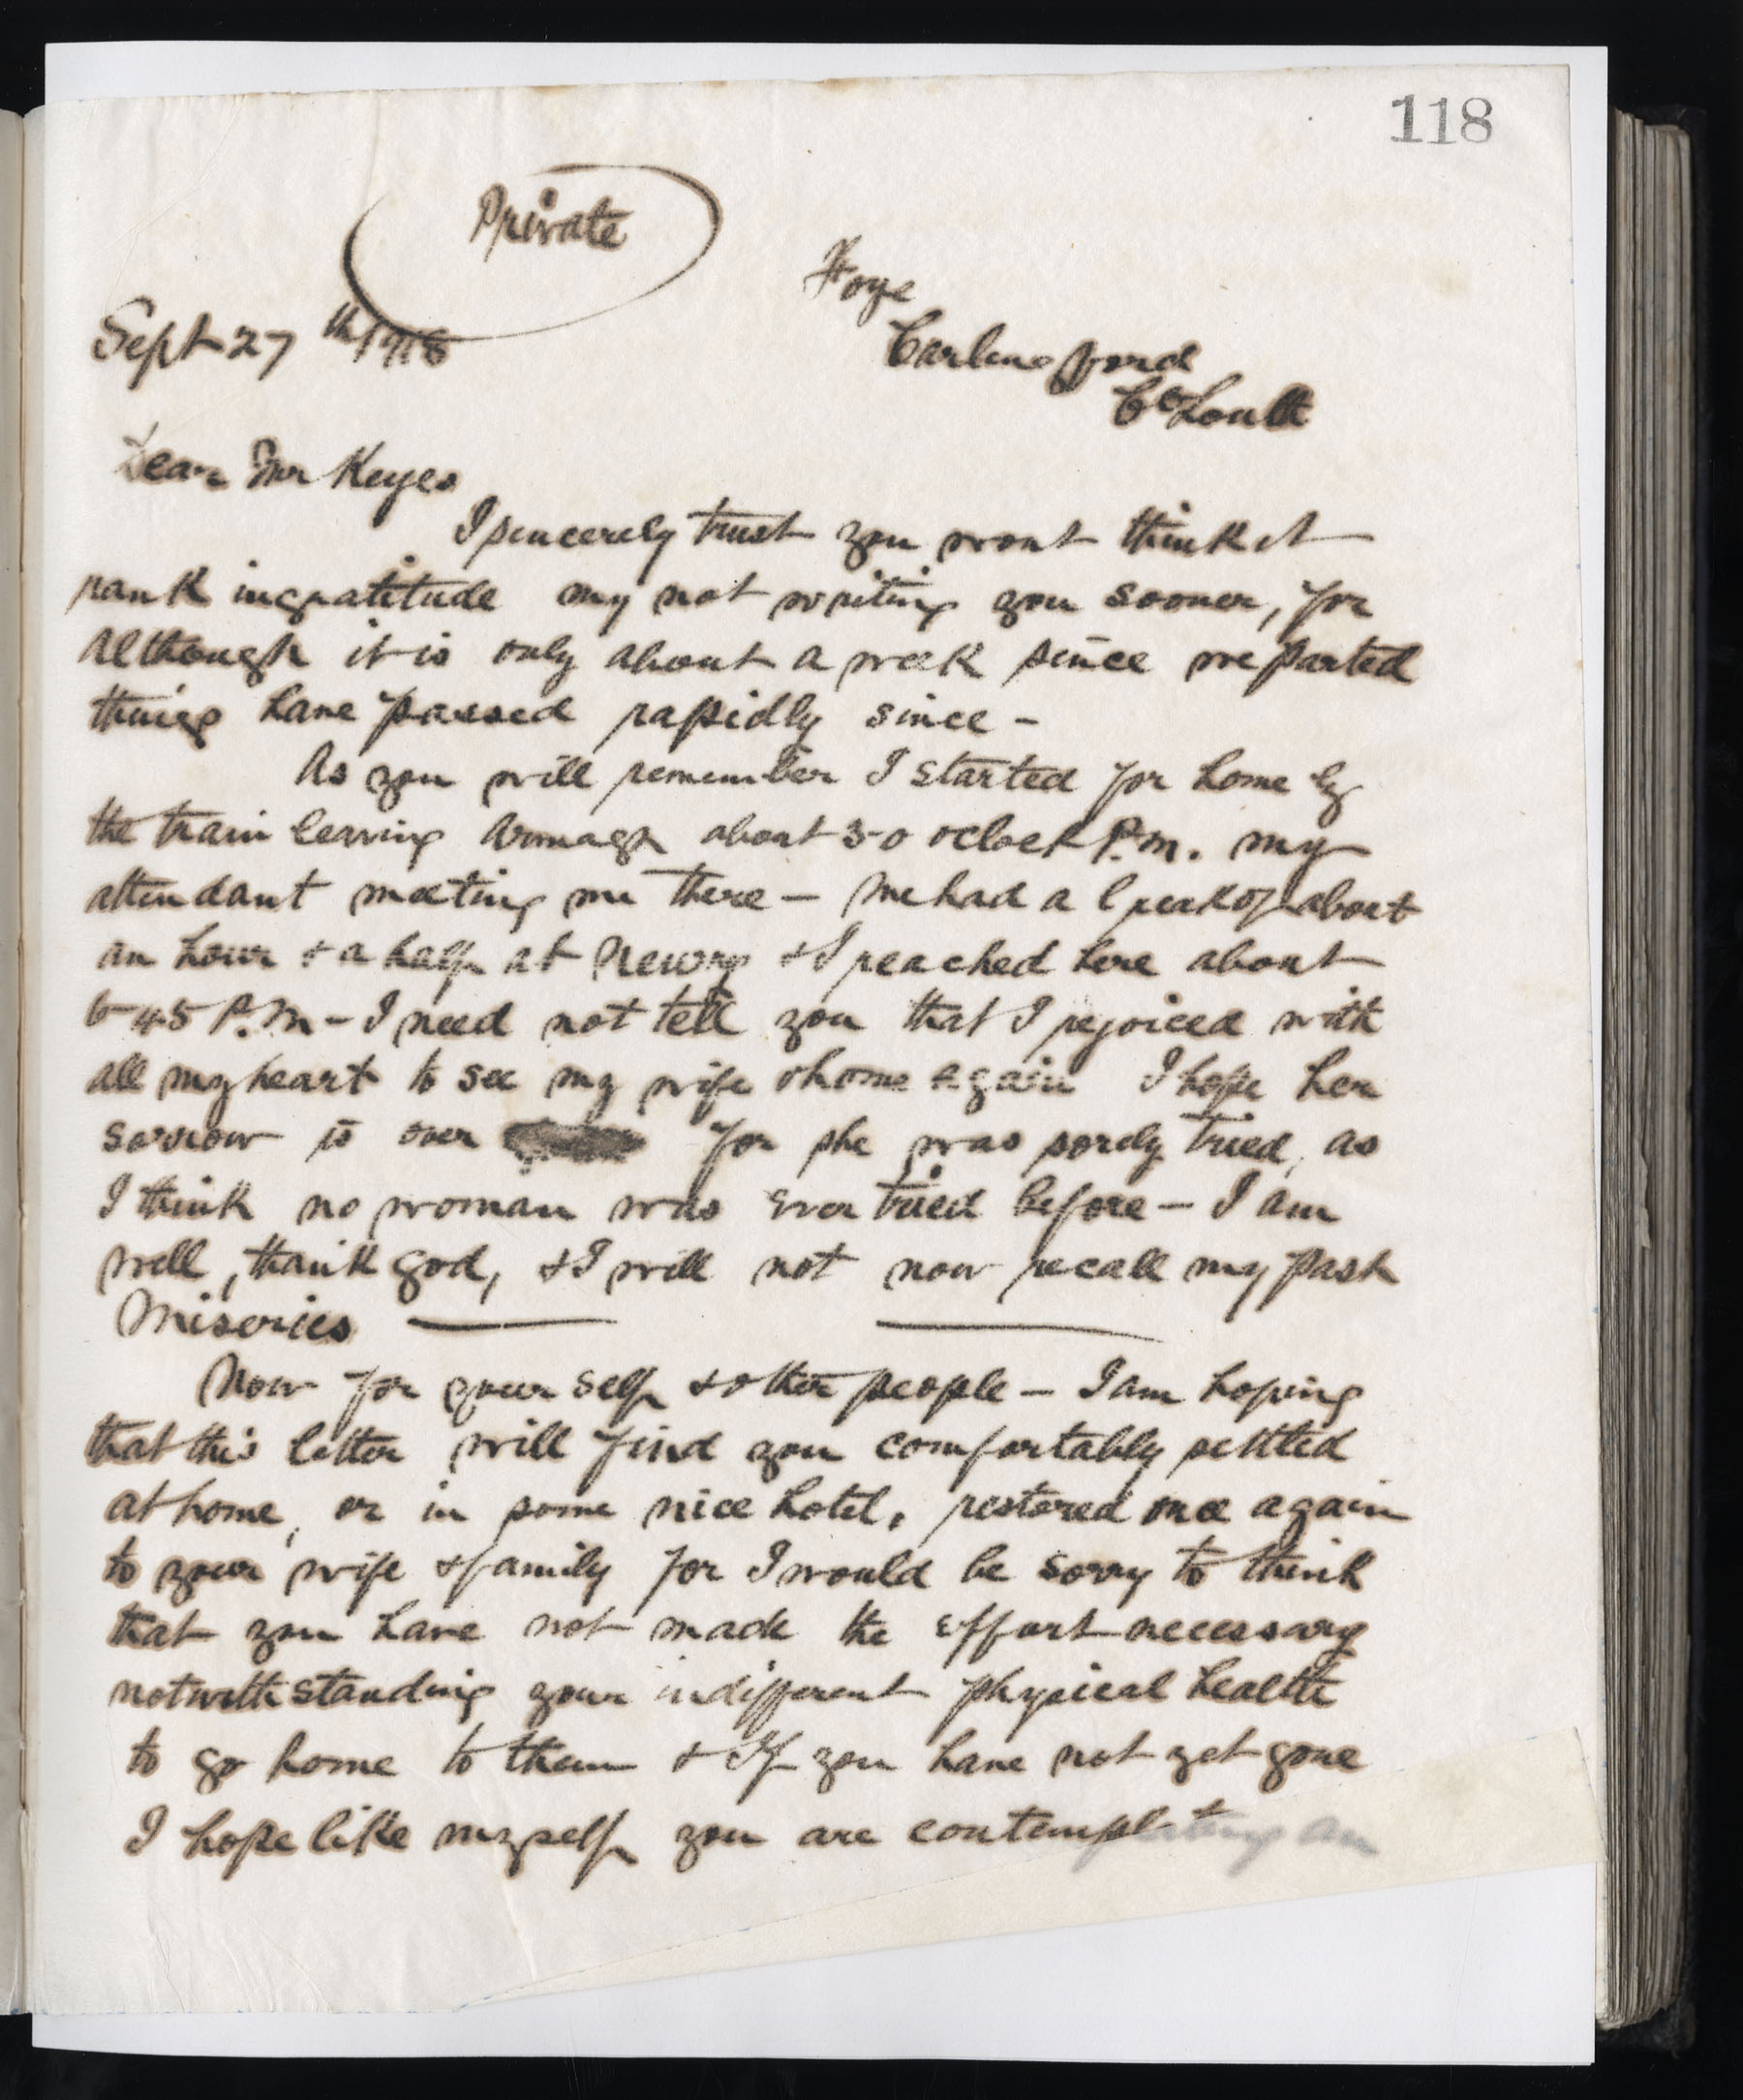 118
Private
Foye
Sept 27th 1918
Carlingford
Co Louth
Dear Mr Keyes
I sincerely trust you wont think it
rank ingratitude my not writing you sooner, for
although it is only about a week since we parted
things have passed rapidly since -
As you will remember I started for home by
the train leaving Armagh about 3-0 oclock P.m. my
attendant meeting me there - We had a break of about
an hour & a half at Newry & I reached here about
6-45 P.M - I need not tell you that I rejoiced with
all my heart to see my wife & home again I hope her
sorrow is over for she was sorely tried, as
I think no woman was ever tried before - I am
well, thank god, & I will not now recall my past
Miseries
Now for your self & other people - I am hoping
that this letter will find you comfortably settled
at home, or in some nice hotel, restored once again
to your wife & family for I would be sorry to think
that you have not made the effort necessary
notwithstanding your indifferent physical health
to go home to them & If you have not yet gone
I hope like myself you are contemplating an